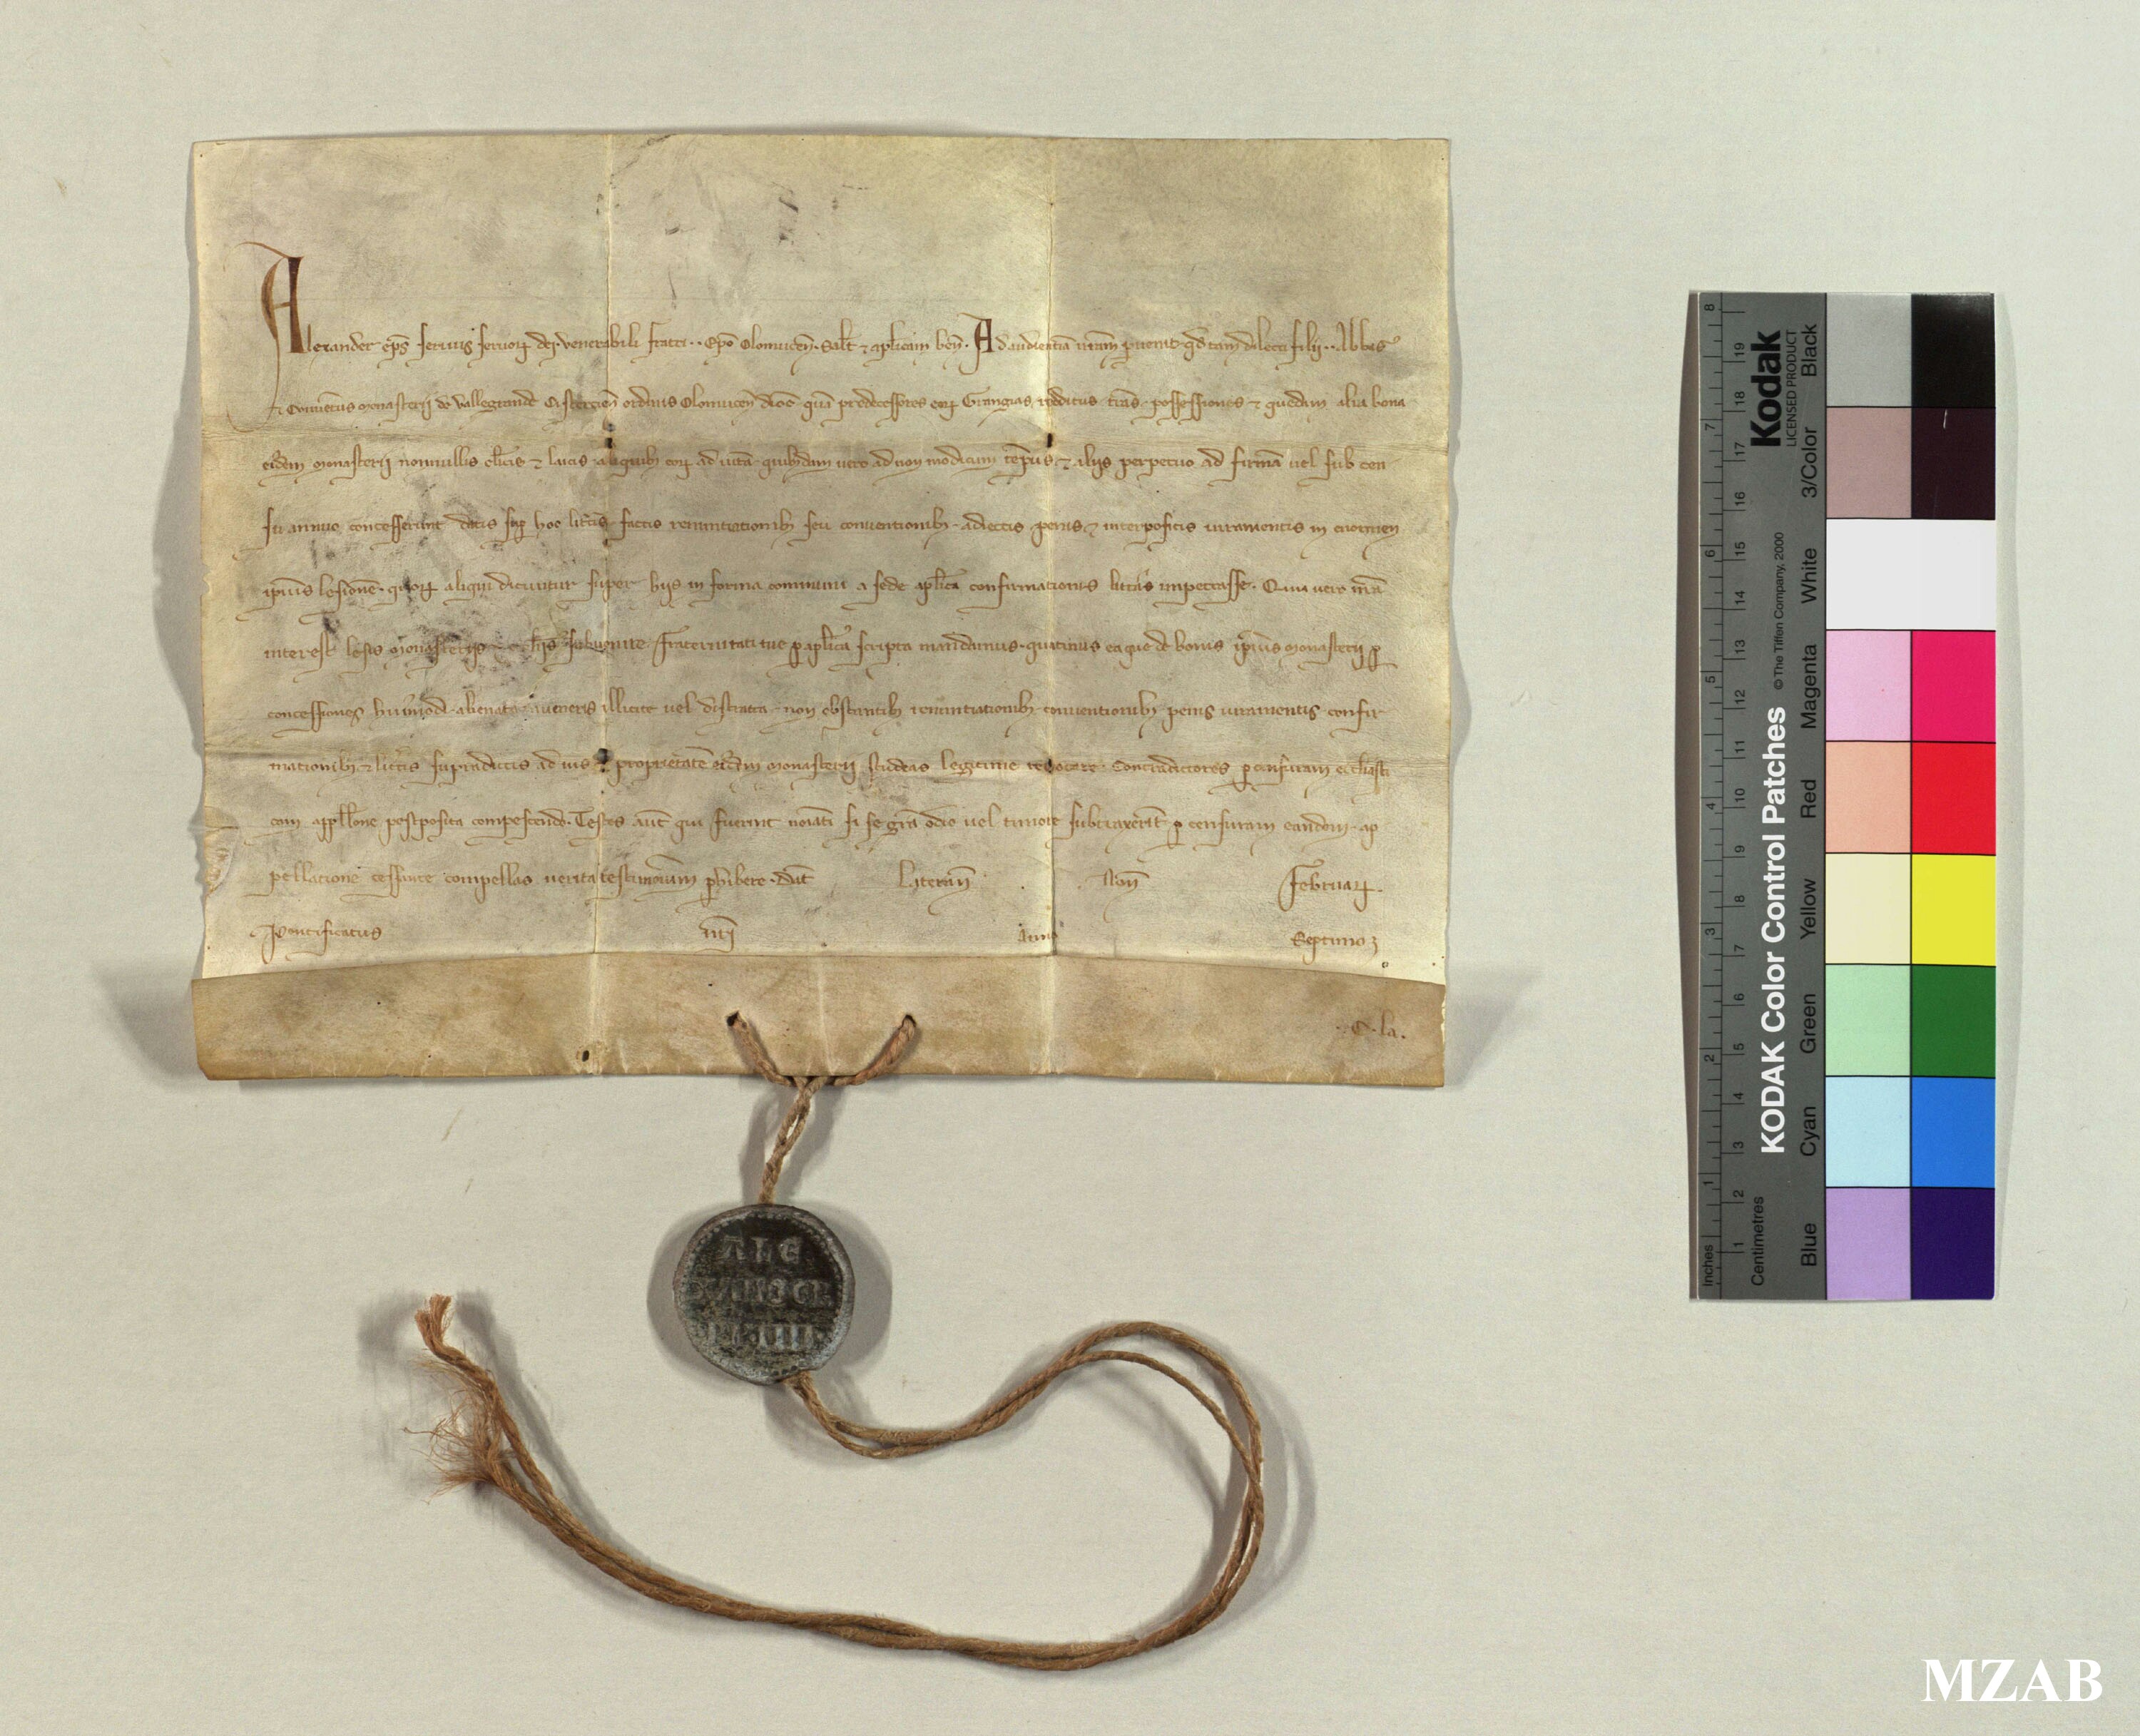 Alexander ep̄s seruus seruoꝝ dei. venerabili fratri . . Ep̄o Olomucen̄. Salt̄ ⁊ apl̄icam ben̄. Ad audientiā nr̄am ꝑuenit qđ tam dilecti filij . . Abbas
⁊ Conuentus Monasterij de Vallegrand̄ Cistercien̄ ordinis Olomucen̄ dioc̄ qm̄ predecessores eoꝝ Grangias, redditus t̄ras possessiones ⁊ quedam alia bona
eiusdem Monasterij nonnullis cl̄icis ⁊ laicis aliquibꝫ eoꝝ ad uitā quibusdam uero ad non modicum temp̄us, ⁊ alijs perpetuo ad firmā uel sub cen
su annuo concesserunt datis suꝑ hoc litt̄is factis renuntiationibꝫ seu conuentionibꝫ adiectis penis, ⁊ interpositis iuramentis in enormen
ip̄ius lesionē. quoꝝ aliqui dicuntur super hijs in forma communi a sede apl̄ica confirmationis litt̄as impetrasse. Quia uero nr̄a
interest lesis Monasterijs subuenire fraternitati tue ꝑ apl̄ica scripta mandamus. quatinus ea que de bonis ip̄ius Monasterij ꝑ
concessiones huīmodi alienata inueneris illicite uel distracta. non obstantibꝫ renuntiationibꝫ conuentionibꝫ penis iuramentis confir
mationibꝫ ⁊ litt̄is supradictis ad ius ⁊ proprietatē eiusdem Monasterij studeas legitime reuocare. Contradictores ꝑ censuram ecclesiasti
cam appell̄one postposita compescendo. Testes aut̄ qui fuerint noīati si se gr̄a odio uel timore subtraxerīt ꝑ censuram eandem. ap
pellatione cessante compellas ueritati testimonium ꝑhibere. Dat̄ Lateran̄ Non̄ Februaꝝ.
Pontificatus nr̄i Anno Septimo
. C. la.
ALE
XANDER
PP IIII
Kodak
LICENSED PRODUCT
KODAK Color Control Patches © The Tiffen Company, 2000
Black
3/Color
White
Magenta
Red
Yellow
Green
Cyan
Blue
Inches 1 2 3 4 5 6 7 8
Centimetres 1 2 3 4 5 6 7 8 9 10 11 12 13 14 15 16 17 18 19
MZAB